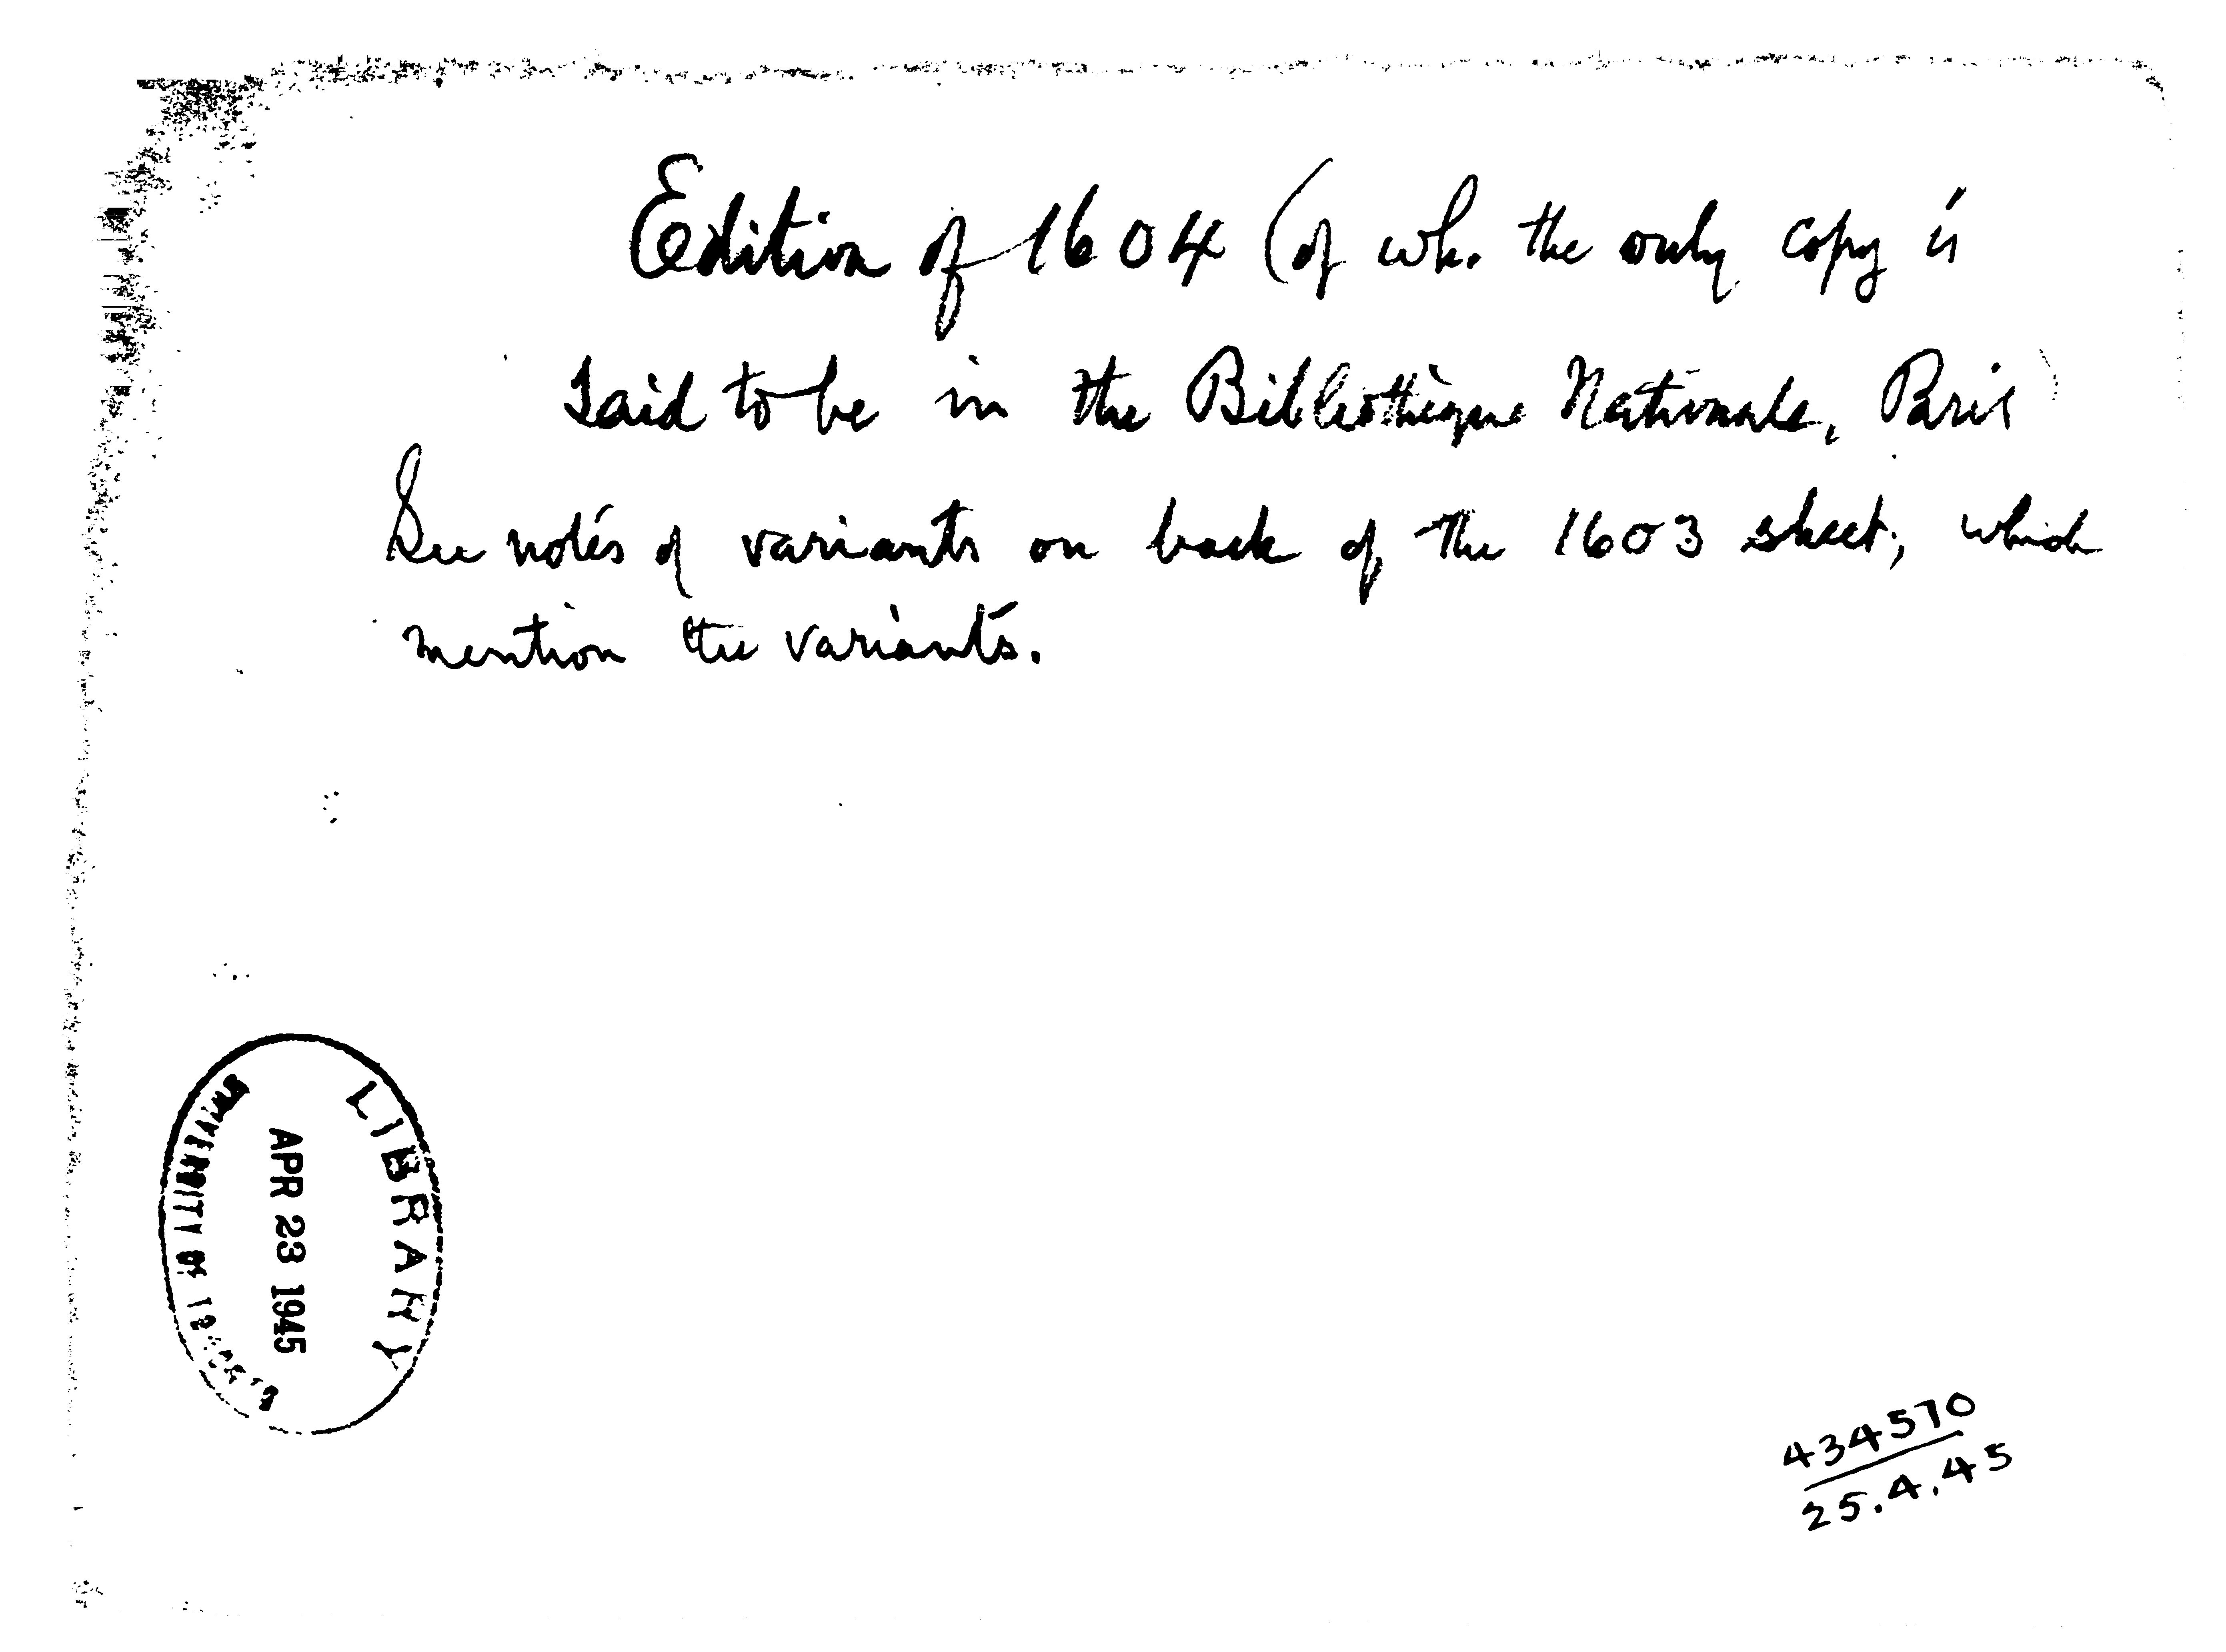 Edition of 1604 (of wh. the only copy is
said to be in the Bibliothèque Nationale, Paris)
See notes of variants on back of the 1603 sheet, which
mention the variants.
LIBRARY
APR 23 1945
UNIVERSITY OF
434570
25.4.45